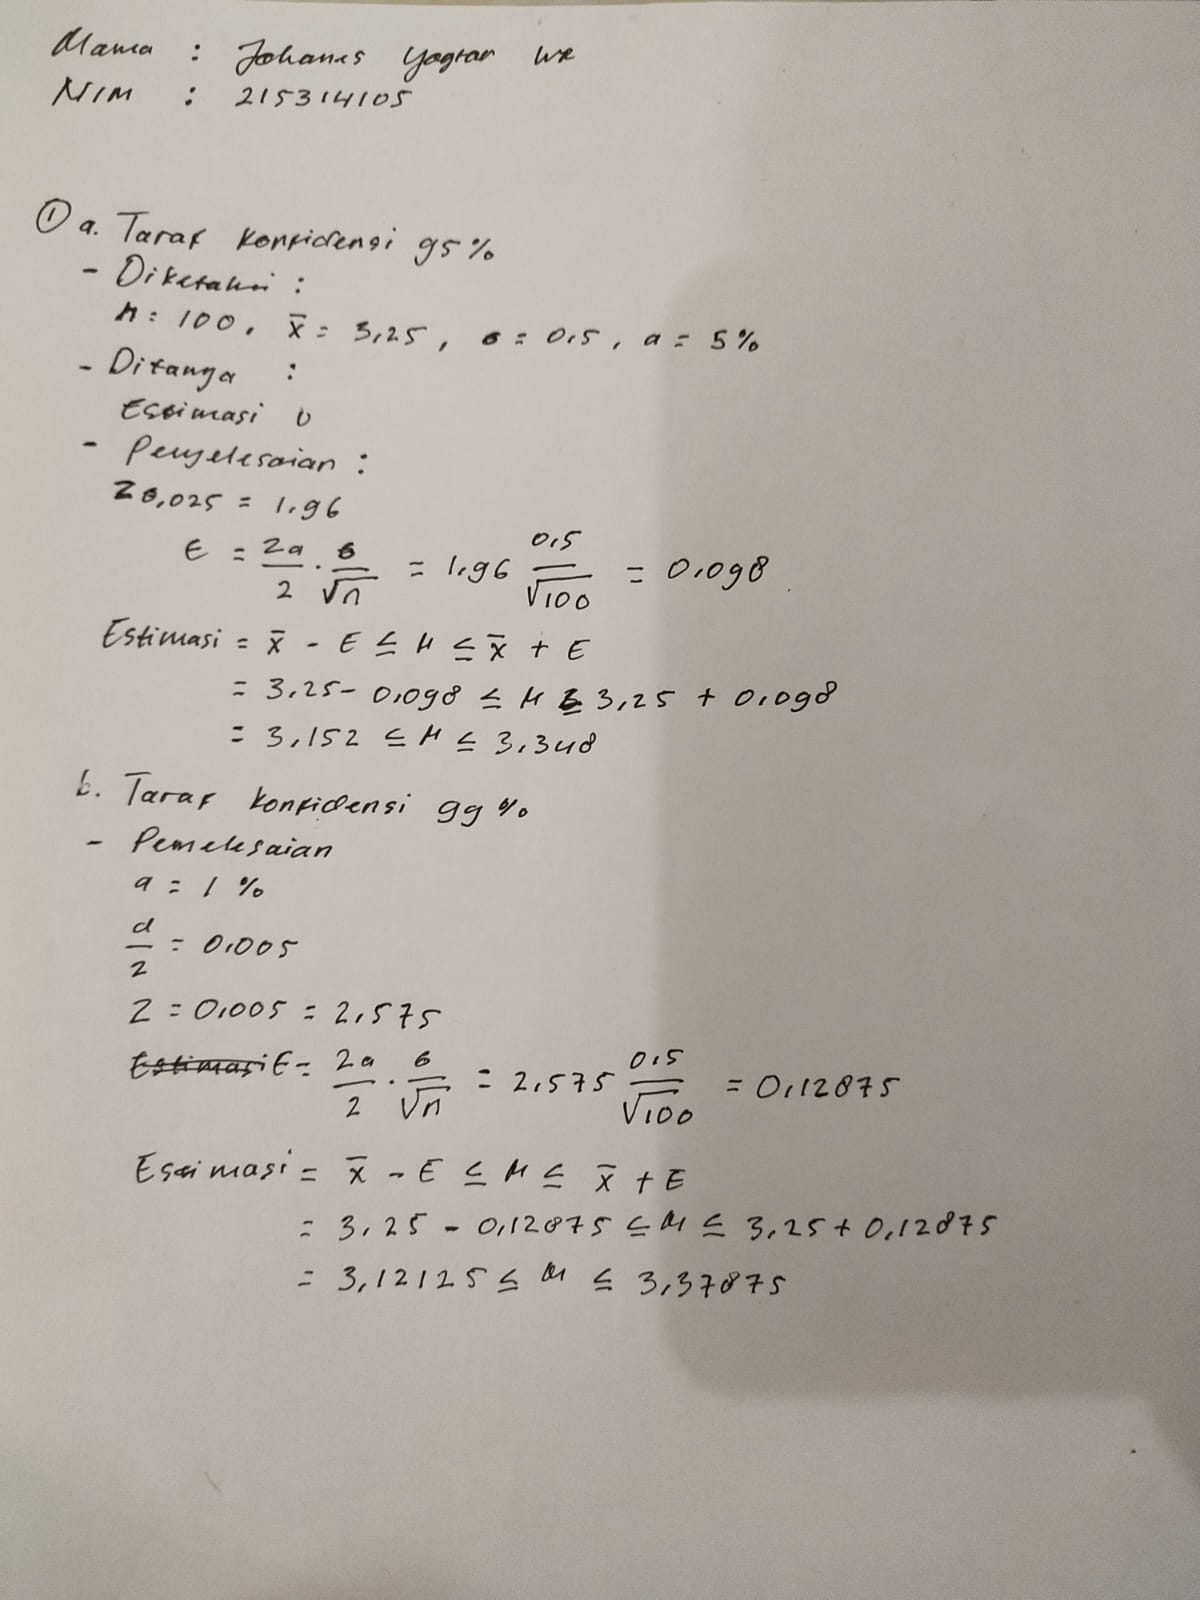 Nama : Johanes Yogtan WR
NIM : 215314105
① a. Taraf Konfidensi 95%
- Diketahui :
n = 100, x̄ = 3,25, σ = 0,5, a = 5%
- Ditanya :
Estimasi υ
- Penyelesaian :
Z0,025 = 1,96
E = Za/2 · σ/√n = 1,96 0,5/√100 = 0,098
Estimasi = x̄ - E ≤ μ ≤ x̄ + E
= 3,25 - 0,098 ≤ μ ≤ 3,25 + 0,098
= 3,152 ≤ μ ≤ 3,348
b. Taraf Konfidensi 99%
- Pemelesaian
a = 1 %
α/2 = 0,005
Z = 0,005 = 2,575
E = Za/2 · σ/√n = 2,575 0,5/√100 = 0,12875
Estimasi = x̄ - E ≤ μ ≤ x̄ + E
= 3,25 - 0,12875 ≤ μ ≤ 3,25 + 0,12875
= 3,12125 ≤ μ ≤ 3,37875